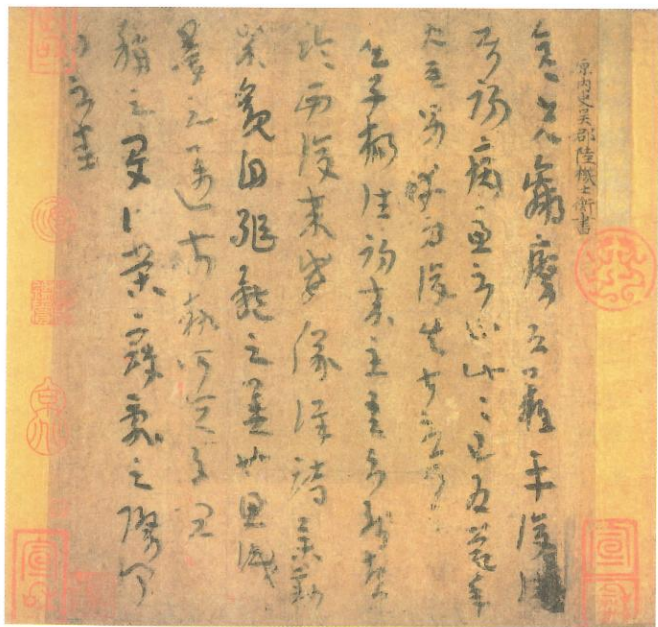 原內史吳郡陸機士衡書
彥先羸瘵恐難平復往屬
初病慮不止此此已為慶承
使唯男幸為復失前憂耳吳
子楊往初來主吾不能盡
臨西復來威儀詳跱舉動
成觀自軀體之美也思識
量之邁前執所恒有宜
稱之夏伯榮寇亂之際聞
問不悉